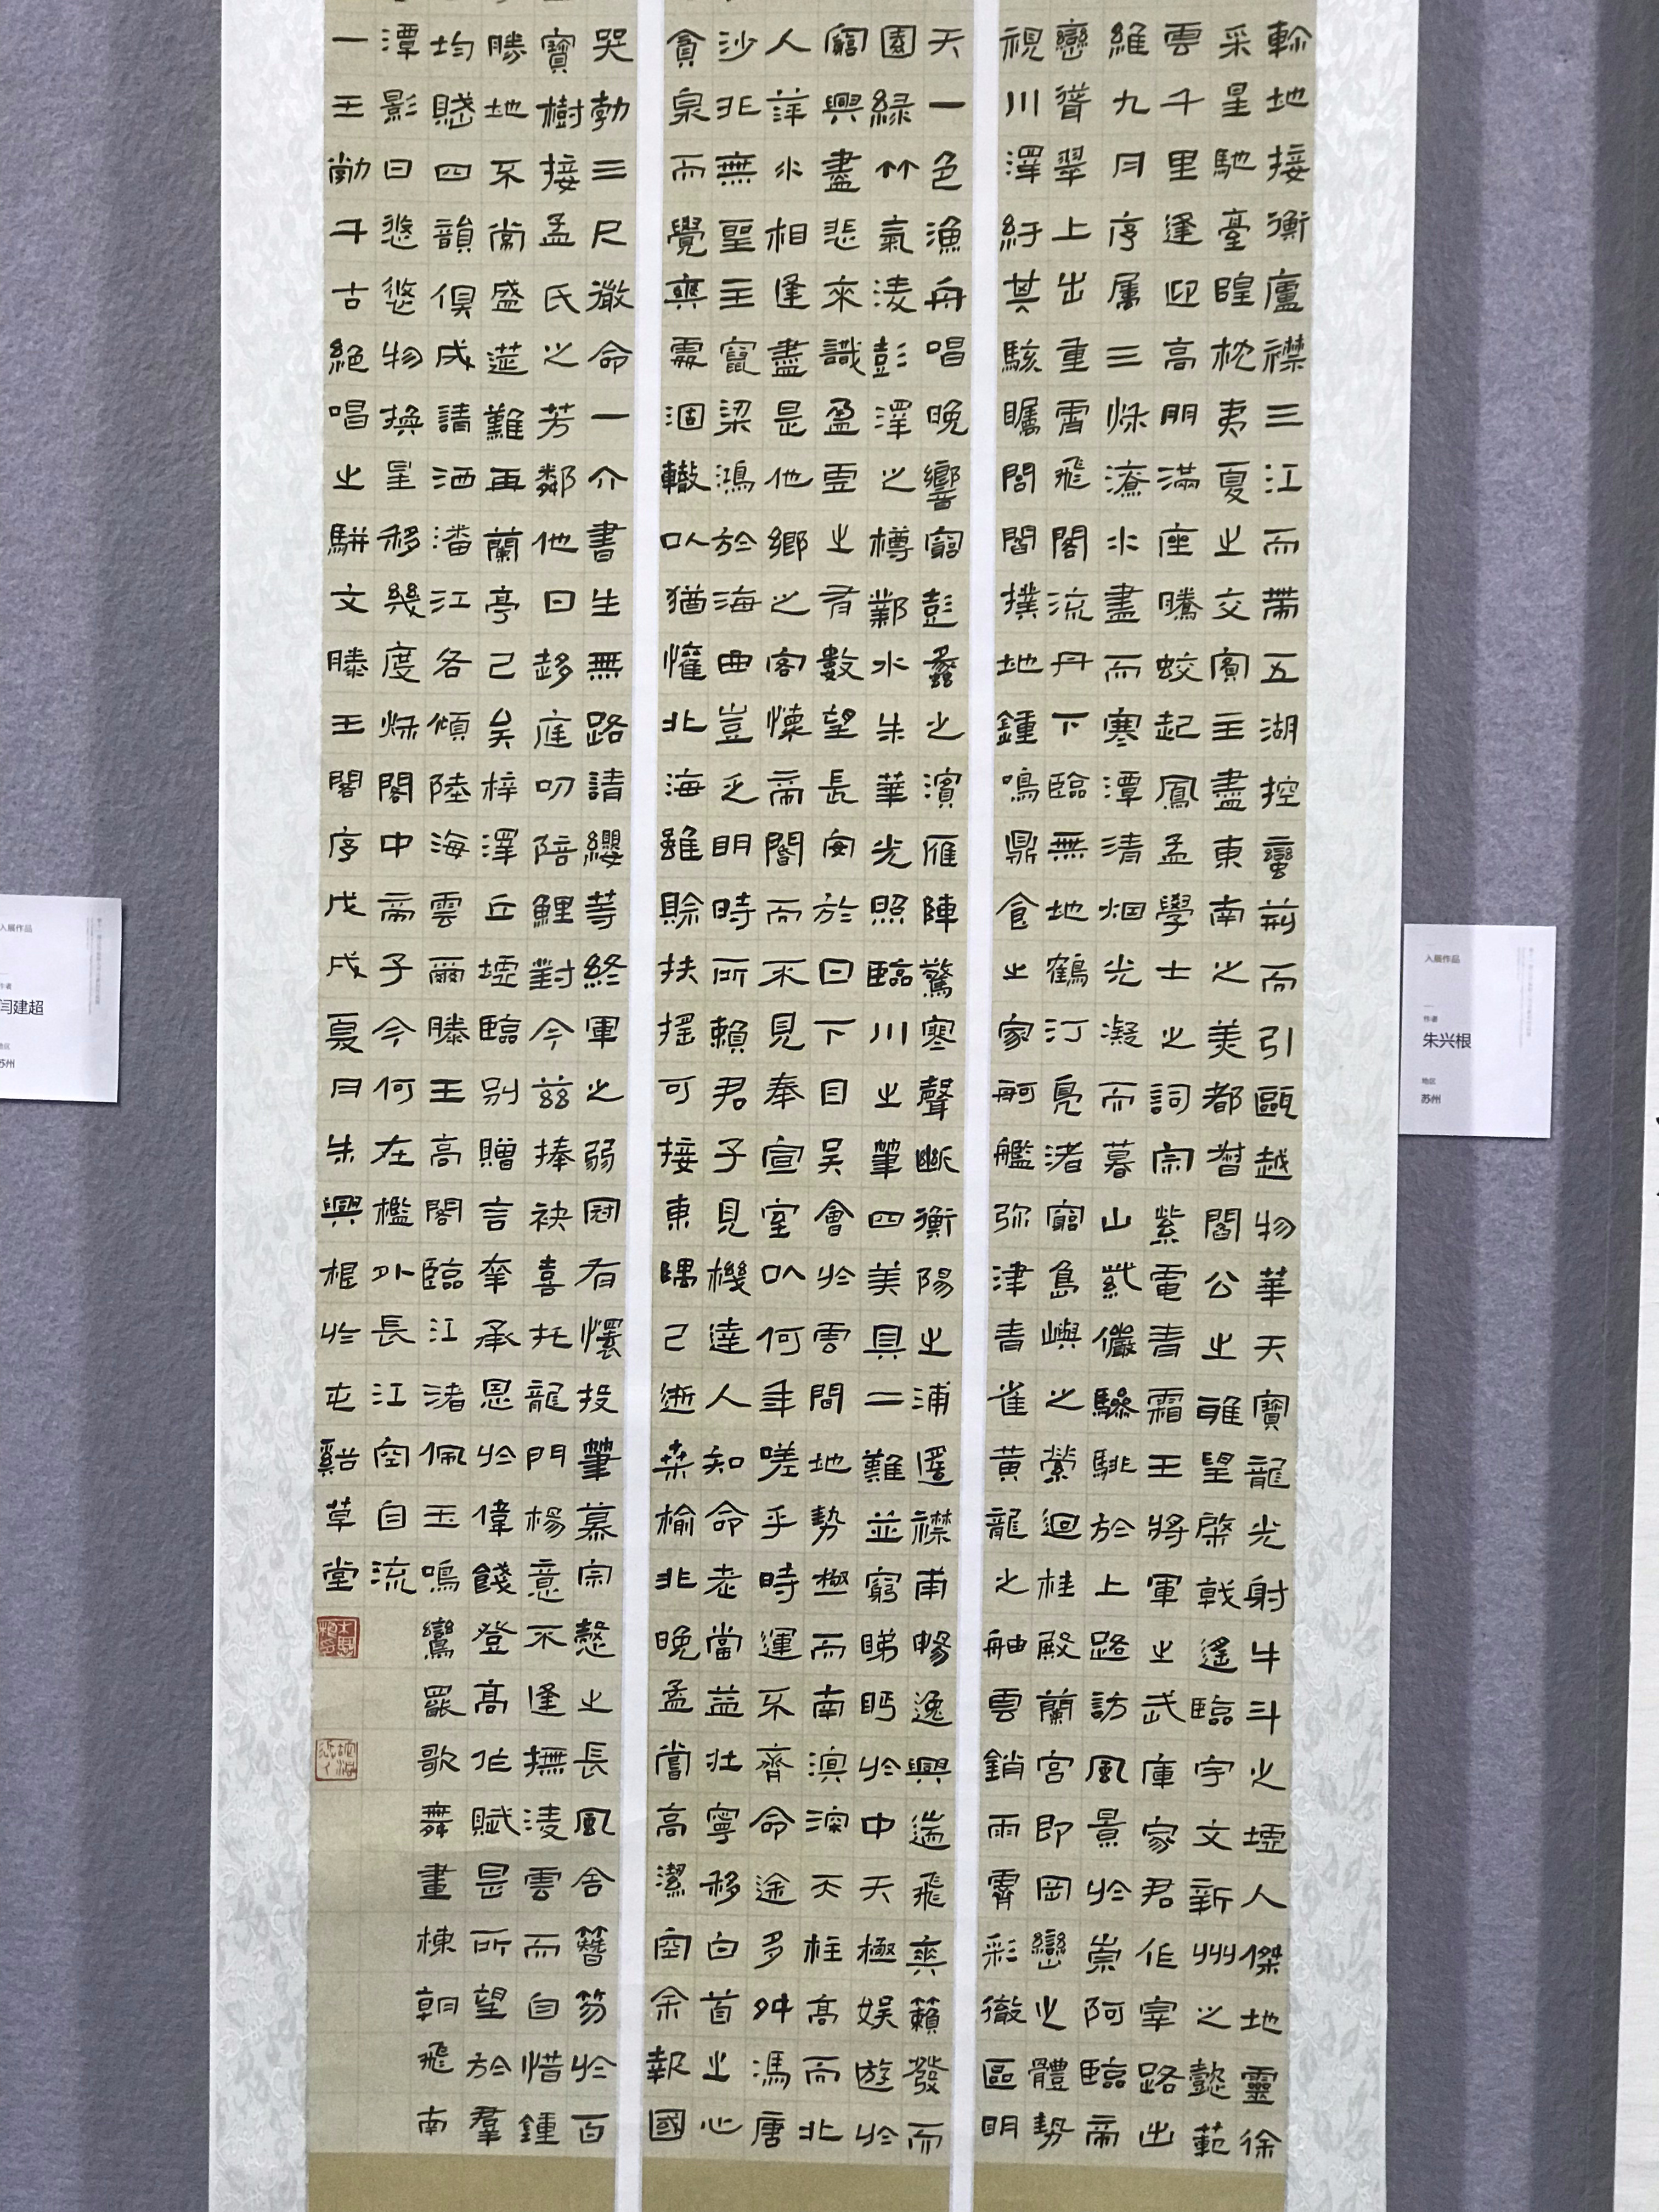 軫地接衡廬襟三江而帶五湖控蠻荊而引甌越物華天寶龍光射牛斗之墟人傑地靈徐
采星馳臺隍枕夷夏之交賓主盡東南之美都督閻公之雅望棨戟遙臨宇文新州之懿範
雲千里逢迎高朋滿座騰蛟起鳳孟學士之詞宗紫電青霜王將軍之武庫家君作宰路出
維九月序屬三秋潦水盡而寒潭清烟光凝而暮山紫儼驂騑於上路訪風景於崇阿臨帝
巒聳翠上出重霄飛閣流丹下臨無地鶴汀鳧渚窮島嶼之縈迴桂殿蘭宮即岡巒之體勢
視川澤紆其駭矚閭閻撲地鍾鳴鼎食之家舸艦弥津青雀黃龍之舳雲銷雨霽彩徹區明
天一色漁舟唱晚響窮彭蠡之濱雁陣驚寒聲斷衡陽之浦遙襟甫暢逸興遄飛爽籟發而
園綠竹氣淩彭澤之樽鄴水朱華光照臨川之筆四美具二難並窮睇眄於中天極娛遊於
窮興盡悲來識盈虛之有數望長安於日下目吳會於雲間地勢極而南溟深天柱高而北
人萍水相逢盡是他鄉之客懷帝閽而不見奉宣室以何年嗟乎時運不齊命途多舛馮唐
沙非無聖主竄梁鴻於海曲豈乏明時所賴君子見機達人知命老當益壯寧移白首之心
貪泉而覺爽處涸轍以猶懽北海雖賒扶搖可接東隅已逝桑榆非晚孟嘗高潔空余報國
哭勃三尺微命一介書生無路請纓等終軍之弱冠有懷投筆慕宗愨之長風舍簪笏於百
寶樹接孟氏之芳鄰他日趨庭叨陪鯉對今茲捧袂喜托龍門楊意不逢撫淩雲而自惜鍾
勝地不常盛筵難再蘭亭已矣梓澤丘墟臨別贈言幸承恩於偉餞登高作賦是所望於羣
均賤四韻俱成請洒潘江各傾陸海雲爾滕王高閣臨江渚佩玉鳴鸞罷歌舞畫棟朝飛南
潭影日悠悠物換星移幾度秋閣中帝子今何在檻外長江空自流
一王勃千古絕唱之駢文滕王閣序戊戌夏月朱興根於屯谿草堂
入展作品
作者
闫建超
地区
苏州
入展作品
作者
朱兴根
地区
苏州